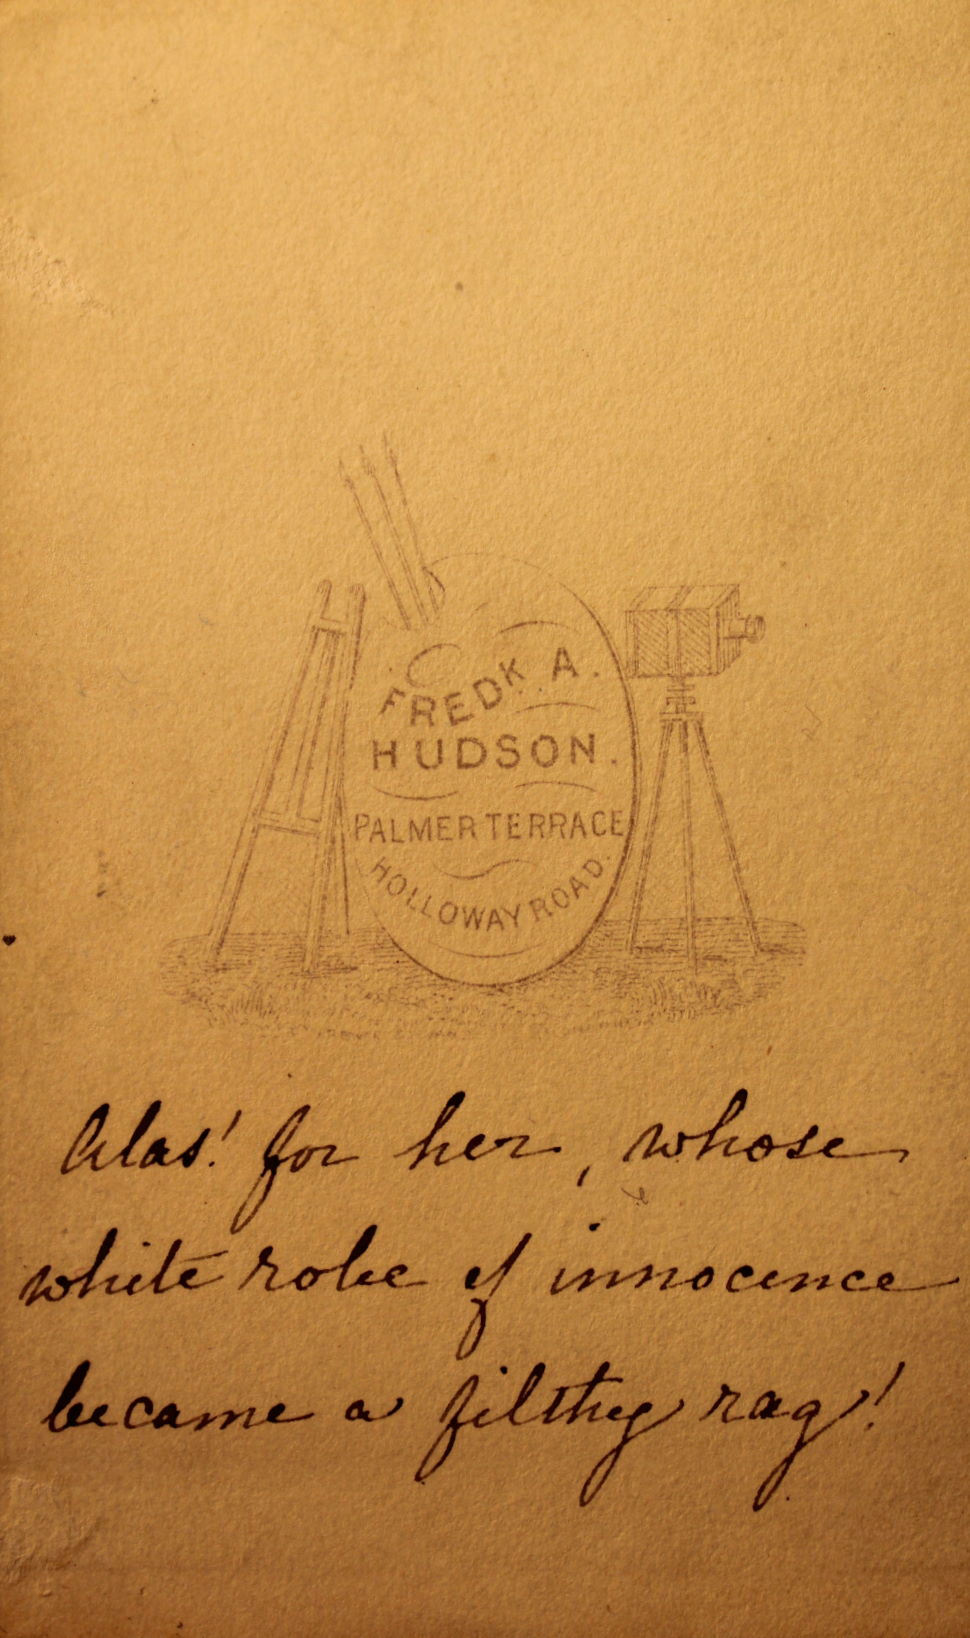 FREDK. A.
HUDSON.
PALMER TERRACE
HOLLOWAY ROAD.
Alas! for her, whose
white robe of innocence
became a filthy rag!